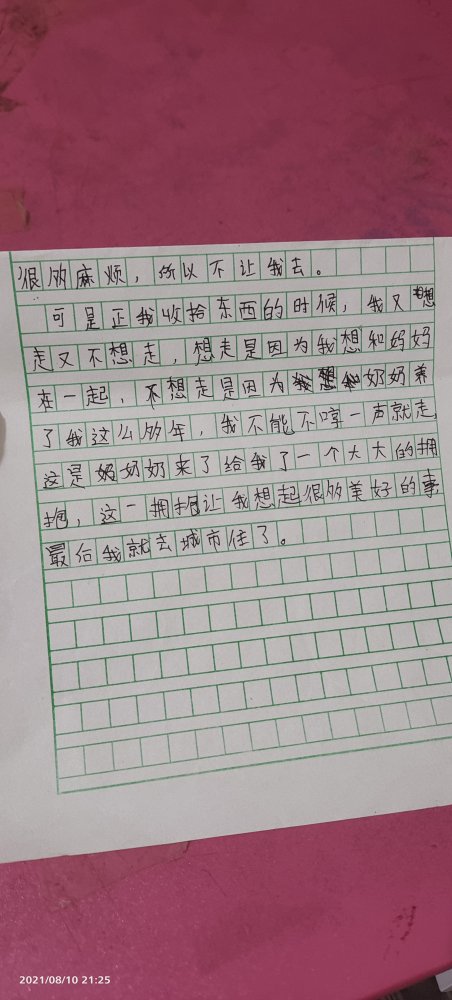 很多麻烦，所以不让我去。
可是正我收拾东西的时候，我又想
走又不想走，想走是因为我想和妈妈
在一起，不想走是因为奶奶养
了我这么多年，我不能不哼一声就走，
这是奶奶来了给我了一个大大的拥
抱，这一拥抱让我想起很多美好的事，
最后我就去城市住了。
2021/08/10 21:25